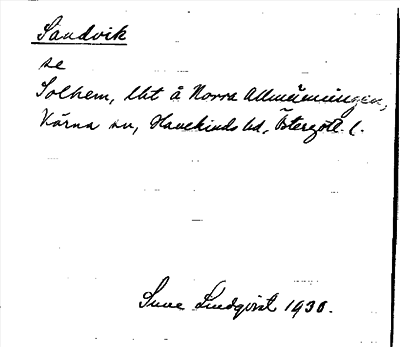 Sandvik
se
Solhem, lht å Norra Allmänningen,
Kärna sn, Hanekinds hd, Östergötl. l.
Sune Lindqvist 1930.